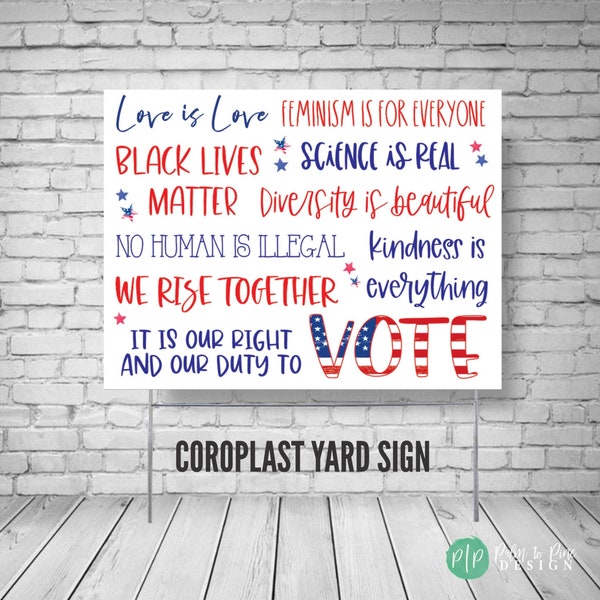 Love is Love FEMINISM IS FOR EVERYONE
BLACK LIVES SCIENCE IS REAL
MATTER Diversity is beautiful
NO HUMAN IS ILLEGAL kindness is
WE RISE TOGETHER everything
IT IS OUR RIGHT
AND OUR DUTY TO VOTE
COROPLAST YARD SIGN
P|P Palm to Pine
DESIGN